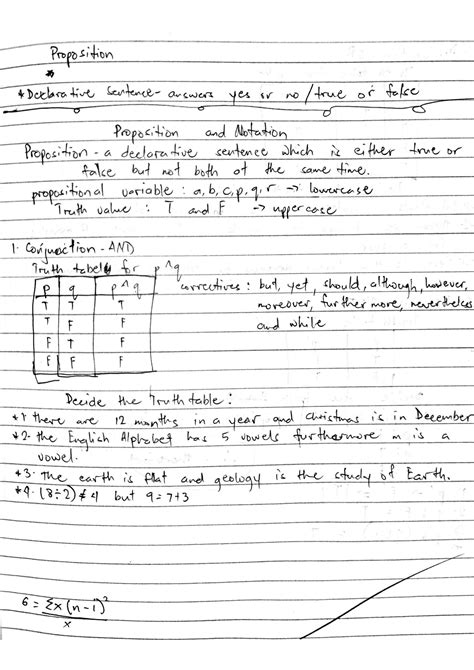 Proposition
* Declarative Sentence - answers yes or no / true or false
Proposition and Notation
Proposition - a declarative sentence which is either true or
false but not both at the same time.
propositional variable : a, b, c, p, q, r → lowercase
Truth value : T and F → uppercase
1. Conjunction - AND
Truth table for p ^ q
p q p ^ q
T T T
T F F
F T F
F F F
correctives : but, yet, should, although, however,
moreover, further more, nevertheless
and while
Decide the Truth table :
*1 there are 12 months in a year and christmas is in December
*2. the English Alphabet has 5 vowels furthermore m is a
vowel.
*3. The earth is flat and geology is the study of Earth.
*4. (8÷2) ≠ 4 but 9 = 7+3
6 = Σx(n-1)²
x